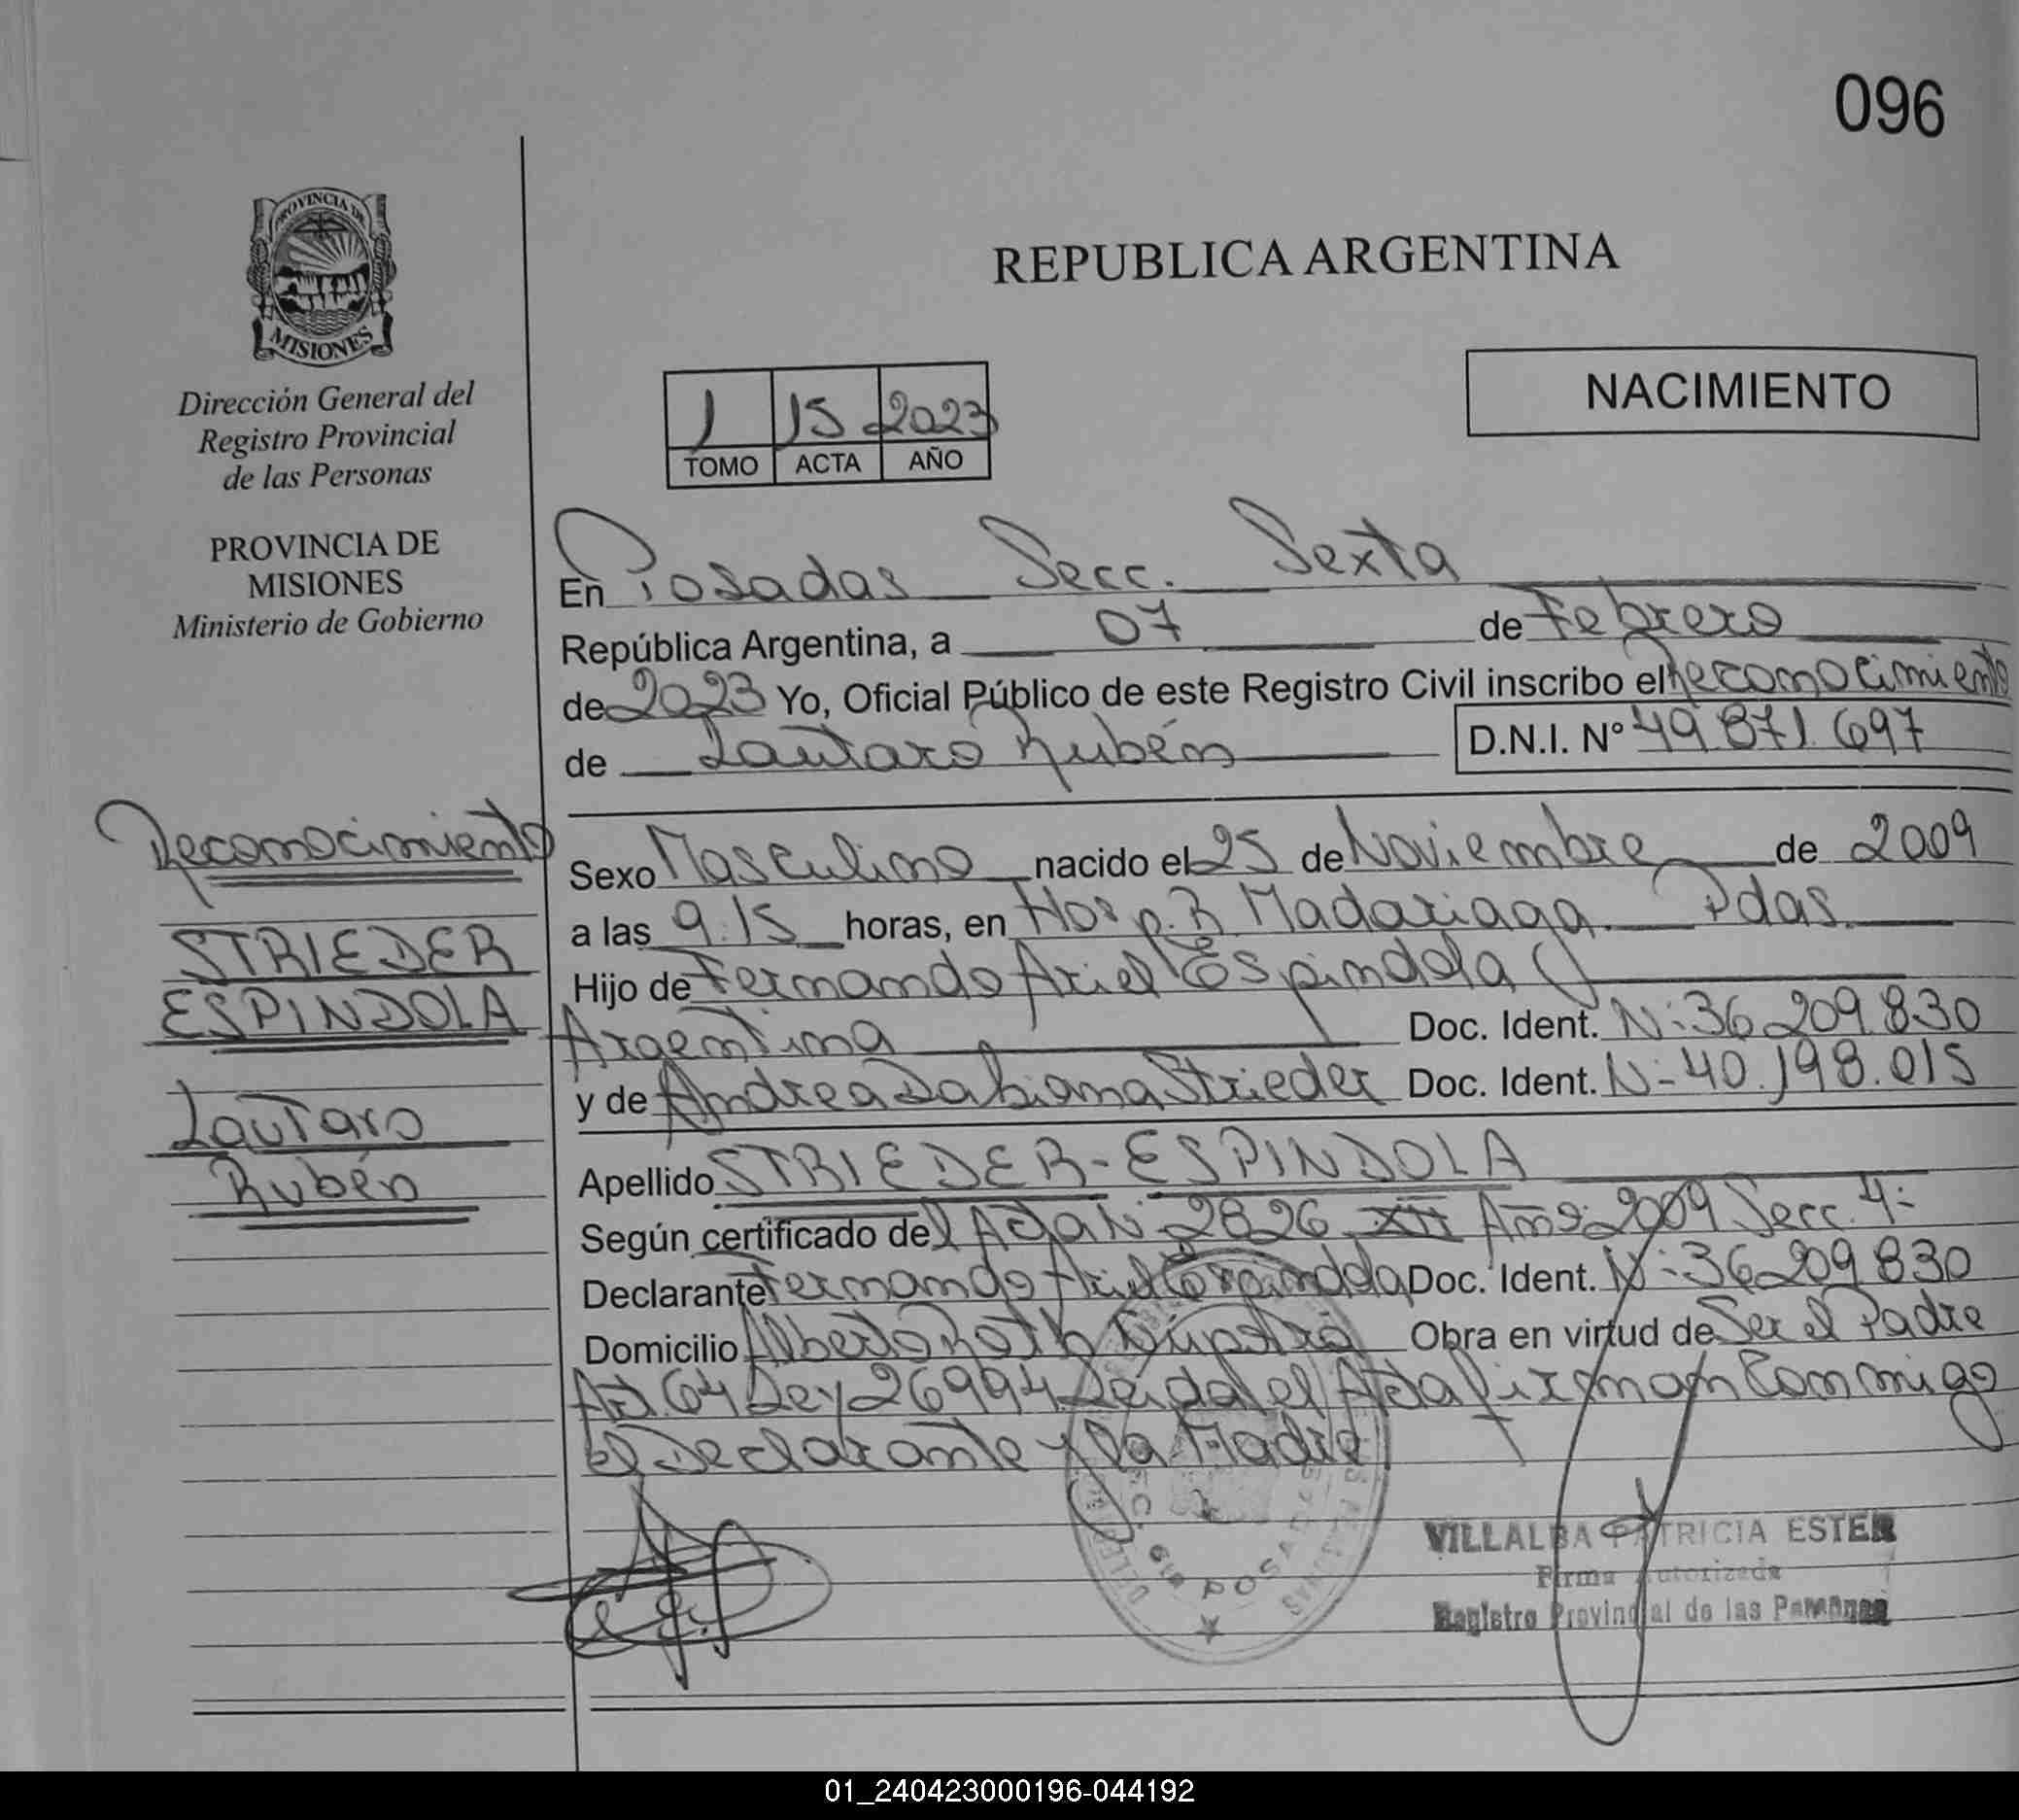 096
PROVINCIA DE
MISIONES
Dirección General del
Registro Provincial
de las Personas
PROVINCIA DE
MISIONES
Ministerio de Gobierno
REPUBLICA ARGENTINA
NACIMIENTO
1 15 2023
TOMO ACTA AÑO
En Posadas Secc. Sexta
República Argentina, a 07 de Febrero
de 2023 Yo, Oficial Público de este Registro Civil inscribo el Reconocimiento
de Lautaro Rubén D.N.I. Nº 49.871.697
Reconocimiento
STRIEDER
ESPINDOLA
Lautaro
Rubén
Sexo Masculino nacido el 25 de Noviembre de 2009
a las 9:15 horas, en Hosp. R Madariaga Pdas.
Hijo de Fernando Ariel Espindola
Argentina Doc. Ident. Nº 36 209 830
y de Andrea Fabiana Strieder Doc. Ident. Nº 40.198.015
Apellido STRIEDER-ESPINDOLA
Según certificado del Acta Nº 2826 XII Año 2009 Secc. 4º
Declarante Fernando Ariel Espindola Doc. Ident. Nº 36209830
Domicilio Alberto Roth Obra en virtud de Ser el Padre
Art. 64 Ley 26994 Leida el Acta firman Conmigo
El Declarante y la Madre
POSADAS
VILLALBA PATRICIA ESTER
Firma Autorizada
Registro Provincial de las Personas
01_240423000196-044192